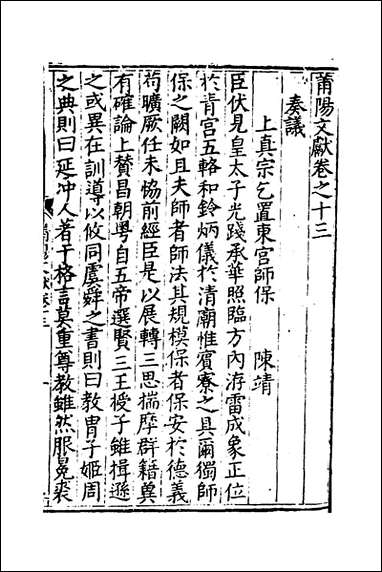 莆陽文獻卷之十三
奏議
上真宗乞置東宮師保 陳靖
臣伏見皇太子光踐承華照臨方內洊雷成象正位
於青宮五輅和鈴炳儀於清廟惟賓寮之具爾獨師
保之闕如且夫師者師法其規模保者保安於德義
苟曠厥任未恊前經臣是以展轉三思揣摩群籍奠
有確論上賛昌朝粤自五帝選賢三王授子雖揖遜
之或異在訓導以攸同虞舜之書則曰教胄子姬周
之典則曰延冲人著于格言莫重尊教雖然服冕裘